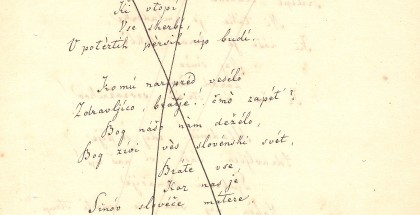 Ki utopi
Vse skerbi,
V potertih persih up budi.
Komu narpred veselo
Zdravljico, bratje! čmo zapet'!
Bog našo nam deželo,
Bog živi ves slovenski svet,
Brate vse
Kar nas je
Sinov sloveče matere.